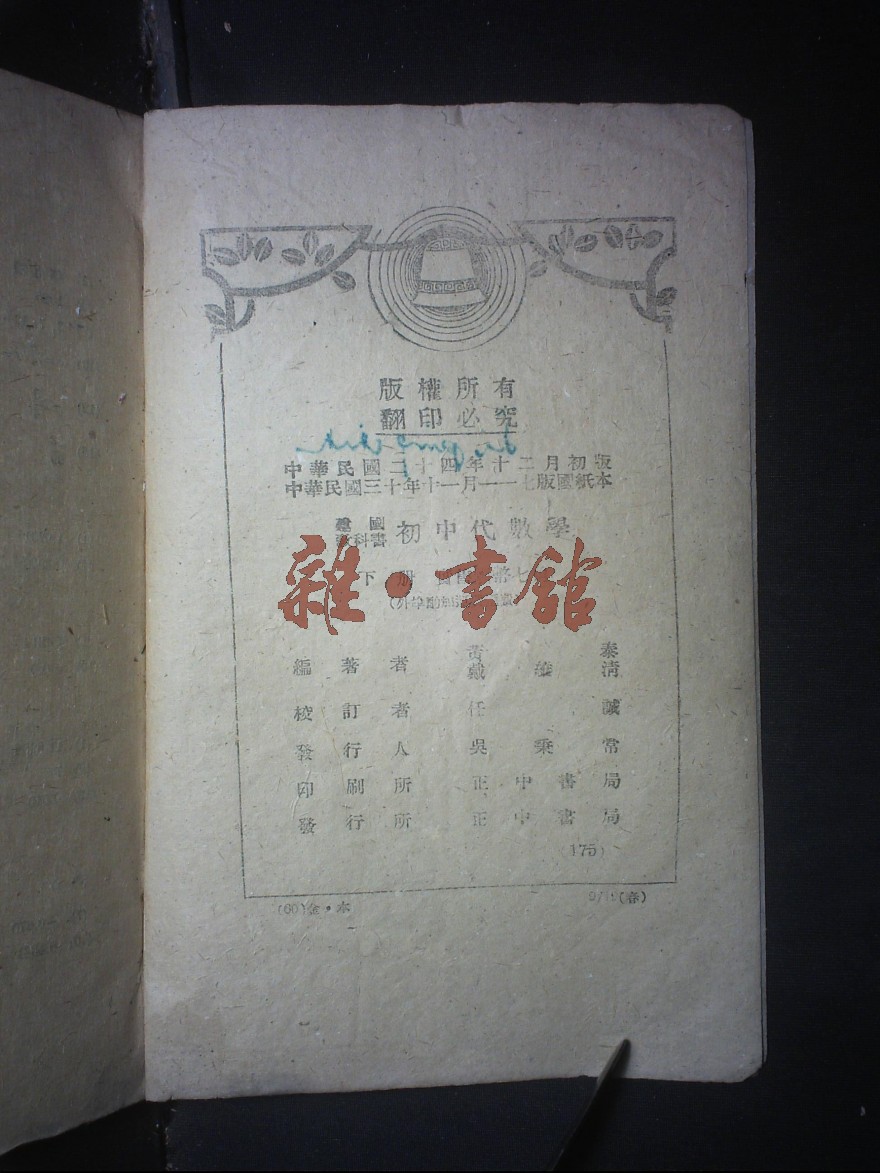 版權所有
翻印必究
中華民國二十四年十二月初版
中華民國三十年十一月一一七版國紙本
建國
教科書
初中代數學
下册
雜·書舘
編著者
黃泰
戴維清
校訂者 任誠
發行人 吳秉常
印刷所 正中書局
發行所 正中書局
(175)
(60)金·本
(春)